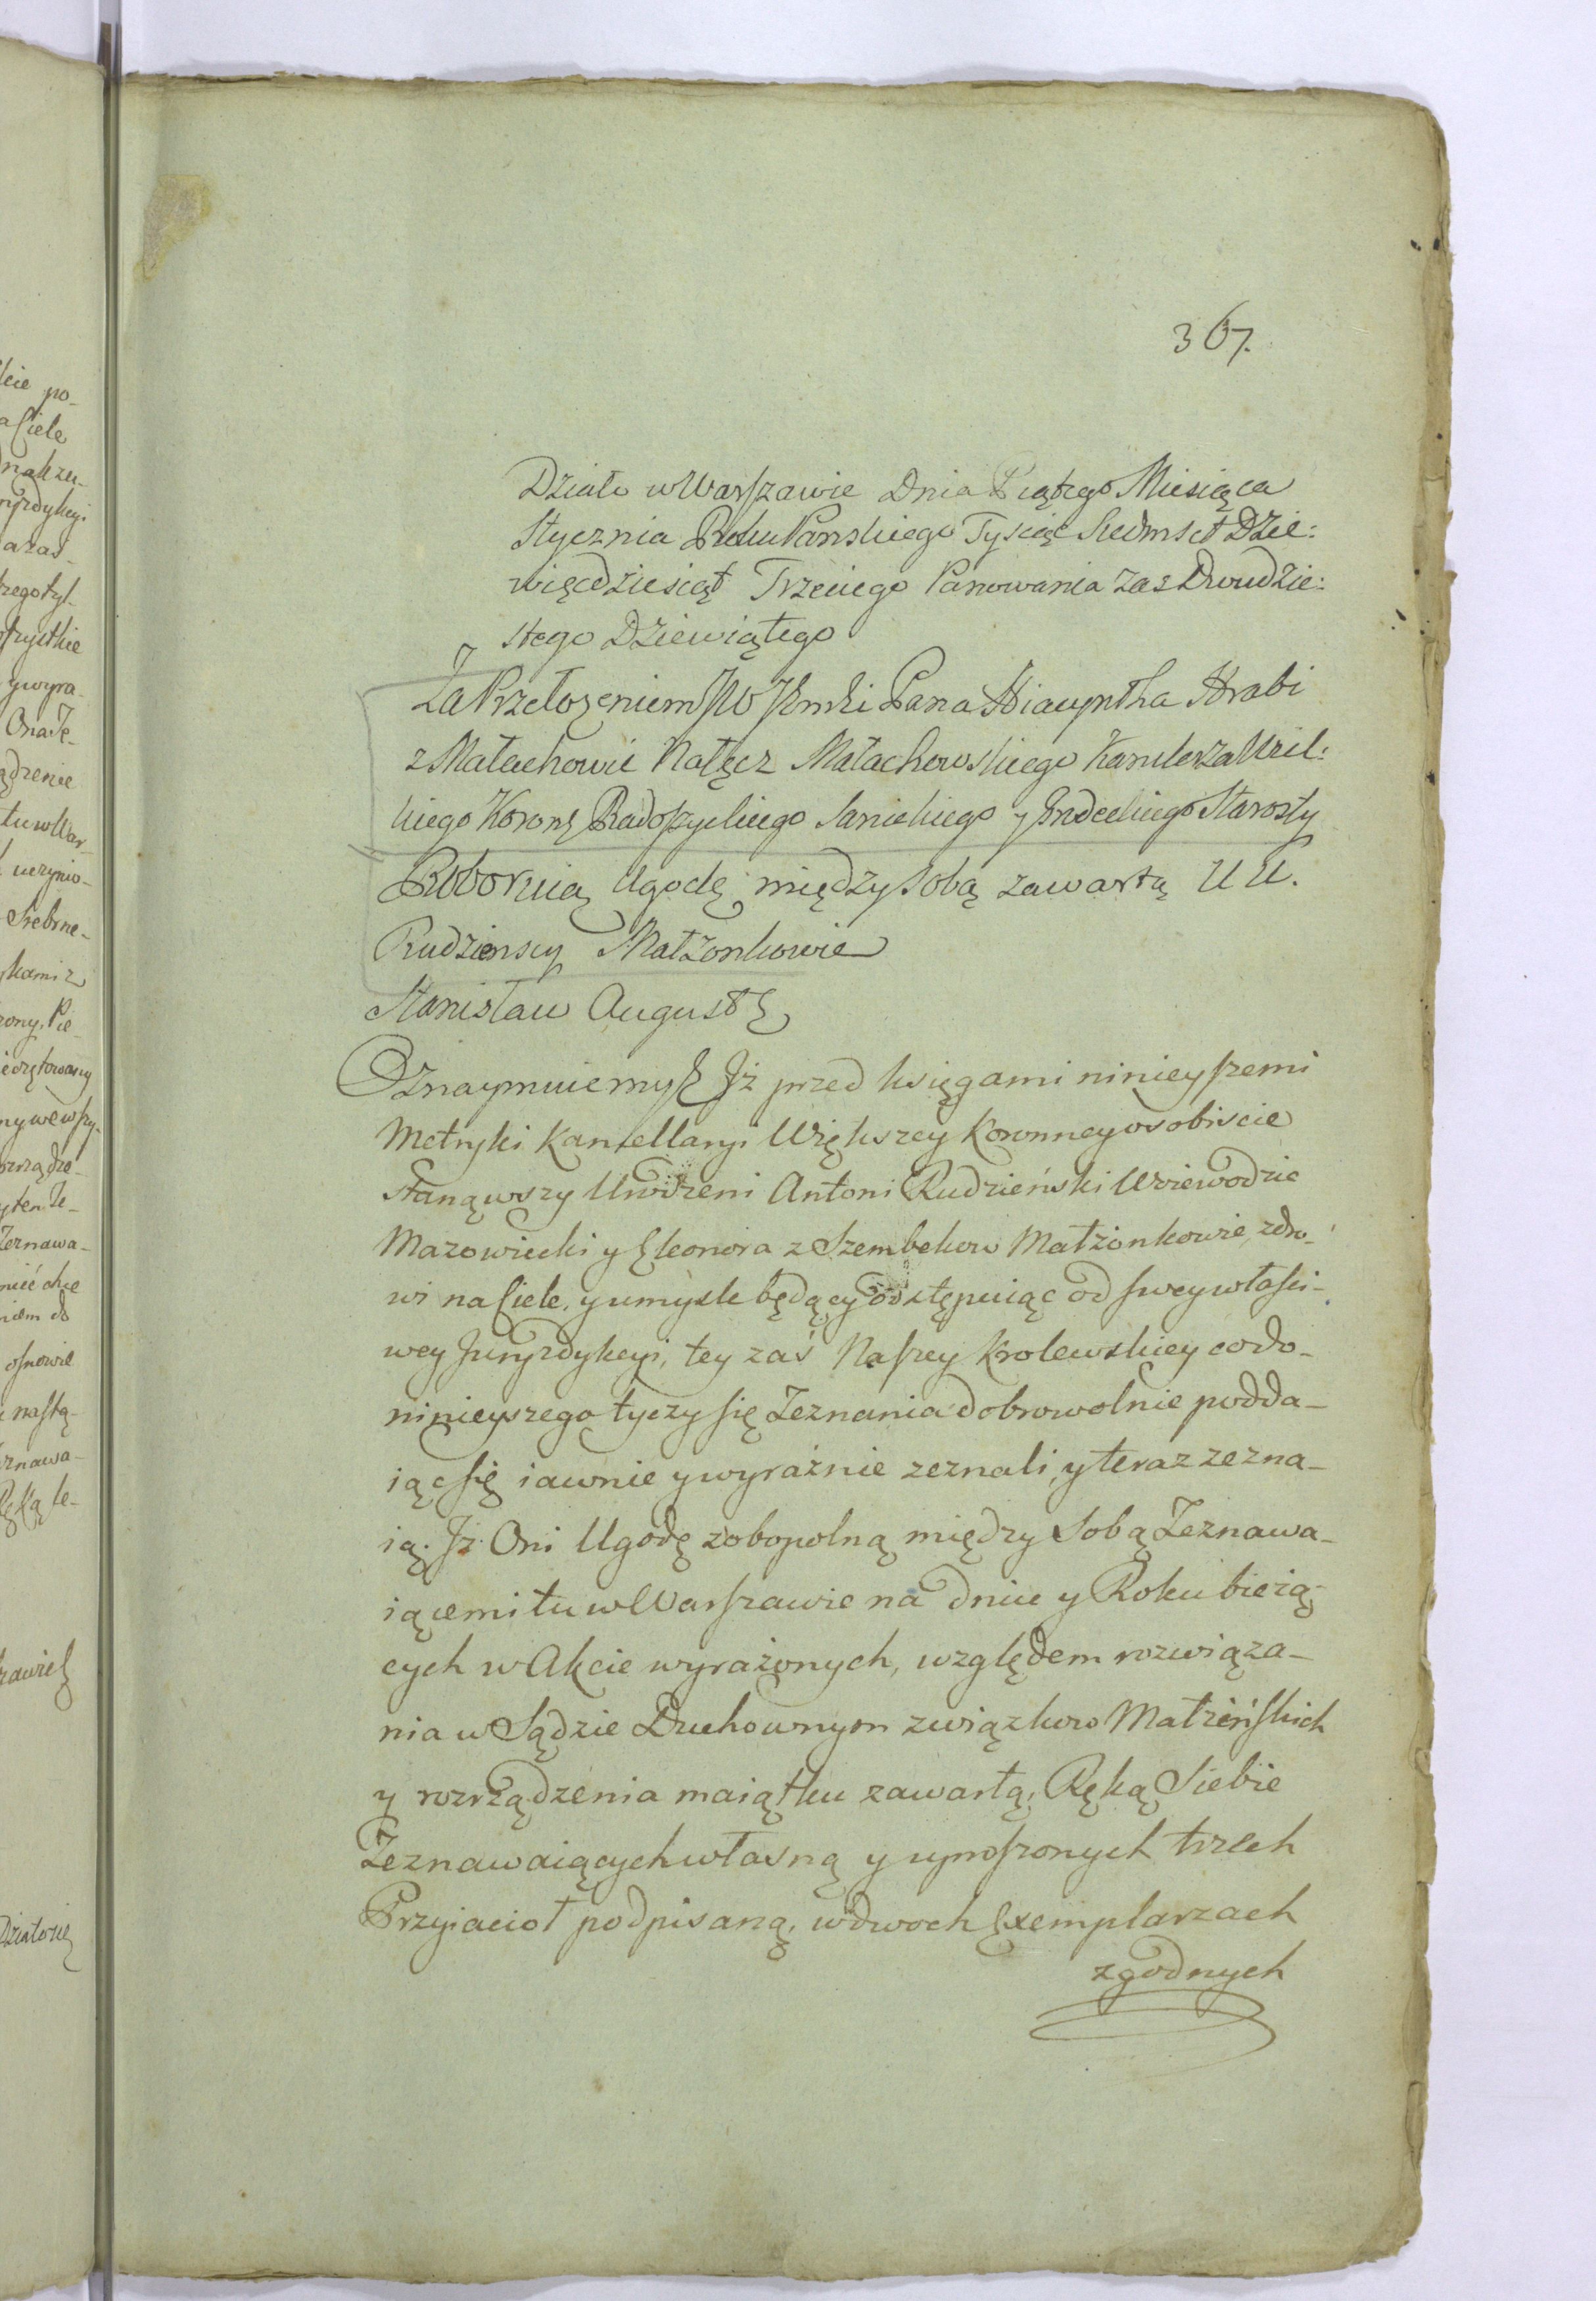 367.
Działo w Warszawie Dnia Piątego Miesiąca
Stycznia Roku Panskiego Tysiąc Siedmset Dzie:
więcdziesiąt Trzeciego Panowania zas Dwudzie:
stego Dziewiątego
Za Przełożeniem JW JPmści Pana Hiacyntha Hrabi
z Małachowic Nałęcz Małachowskiego Kanclerza Wiel:
kiego Koronę Radoszyckiego Sanickiego y Grodeckiego Starosty
Roboruią Ugodę między sobą zawartą UU.
Rudzienscy Małżonkowie
Stanisław August &
Oznaymuiemy & Iż przed księgami ninieyszemi
Metryki Kancellaryi Większey Koronney osobiscie
stanąwszy Urodzeni Antoni Rudzieński Woiewodzic
Mazowiecki y Eleonora z Szembekow Małżonkowie, zdro-
wi na Ciele, y umysle będący odstępuiąc od swey właści-
wey Juryzdykcyi, tey zaś Naszey Krolewskiey co do-
ninieyszego tyczy się Zeznania dobrowolnie podda-
iąc się iawnie y wyraźnie zeznali, y teraz zezna-
ią. Iż Oni Ugodę zobopolną między Sobą Zeznawa-
iącemi tu w Warszawie na dniu y Roku bieżą-
cych w Akcie wyrażonych, względem rozwiąza-
nia w Sądzie Duchownym związkow Małżeńskich
y rozrządzenia maiątku zawartą, Ręką Siebie
Zeznawaiących własną y uproszonych trzech
Przyiacioł podpisaną, w dwoch Exemplarzach
zgodnych